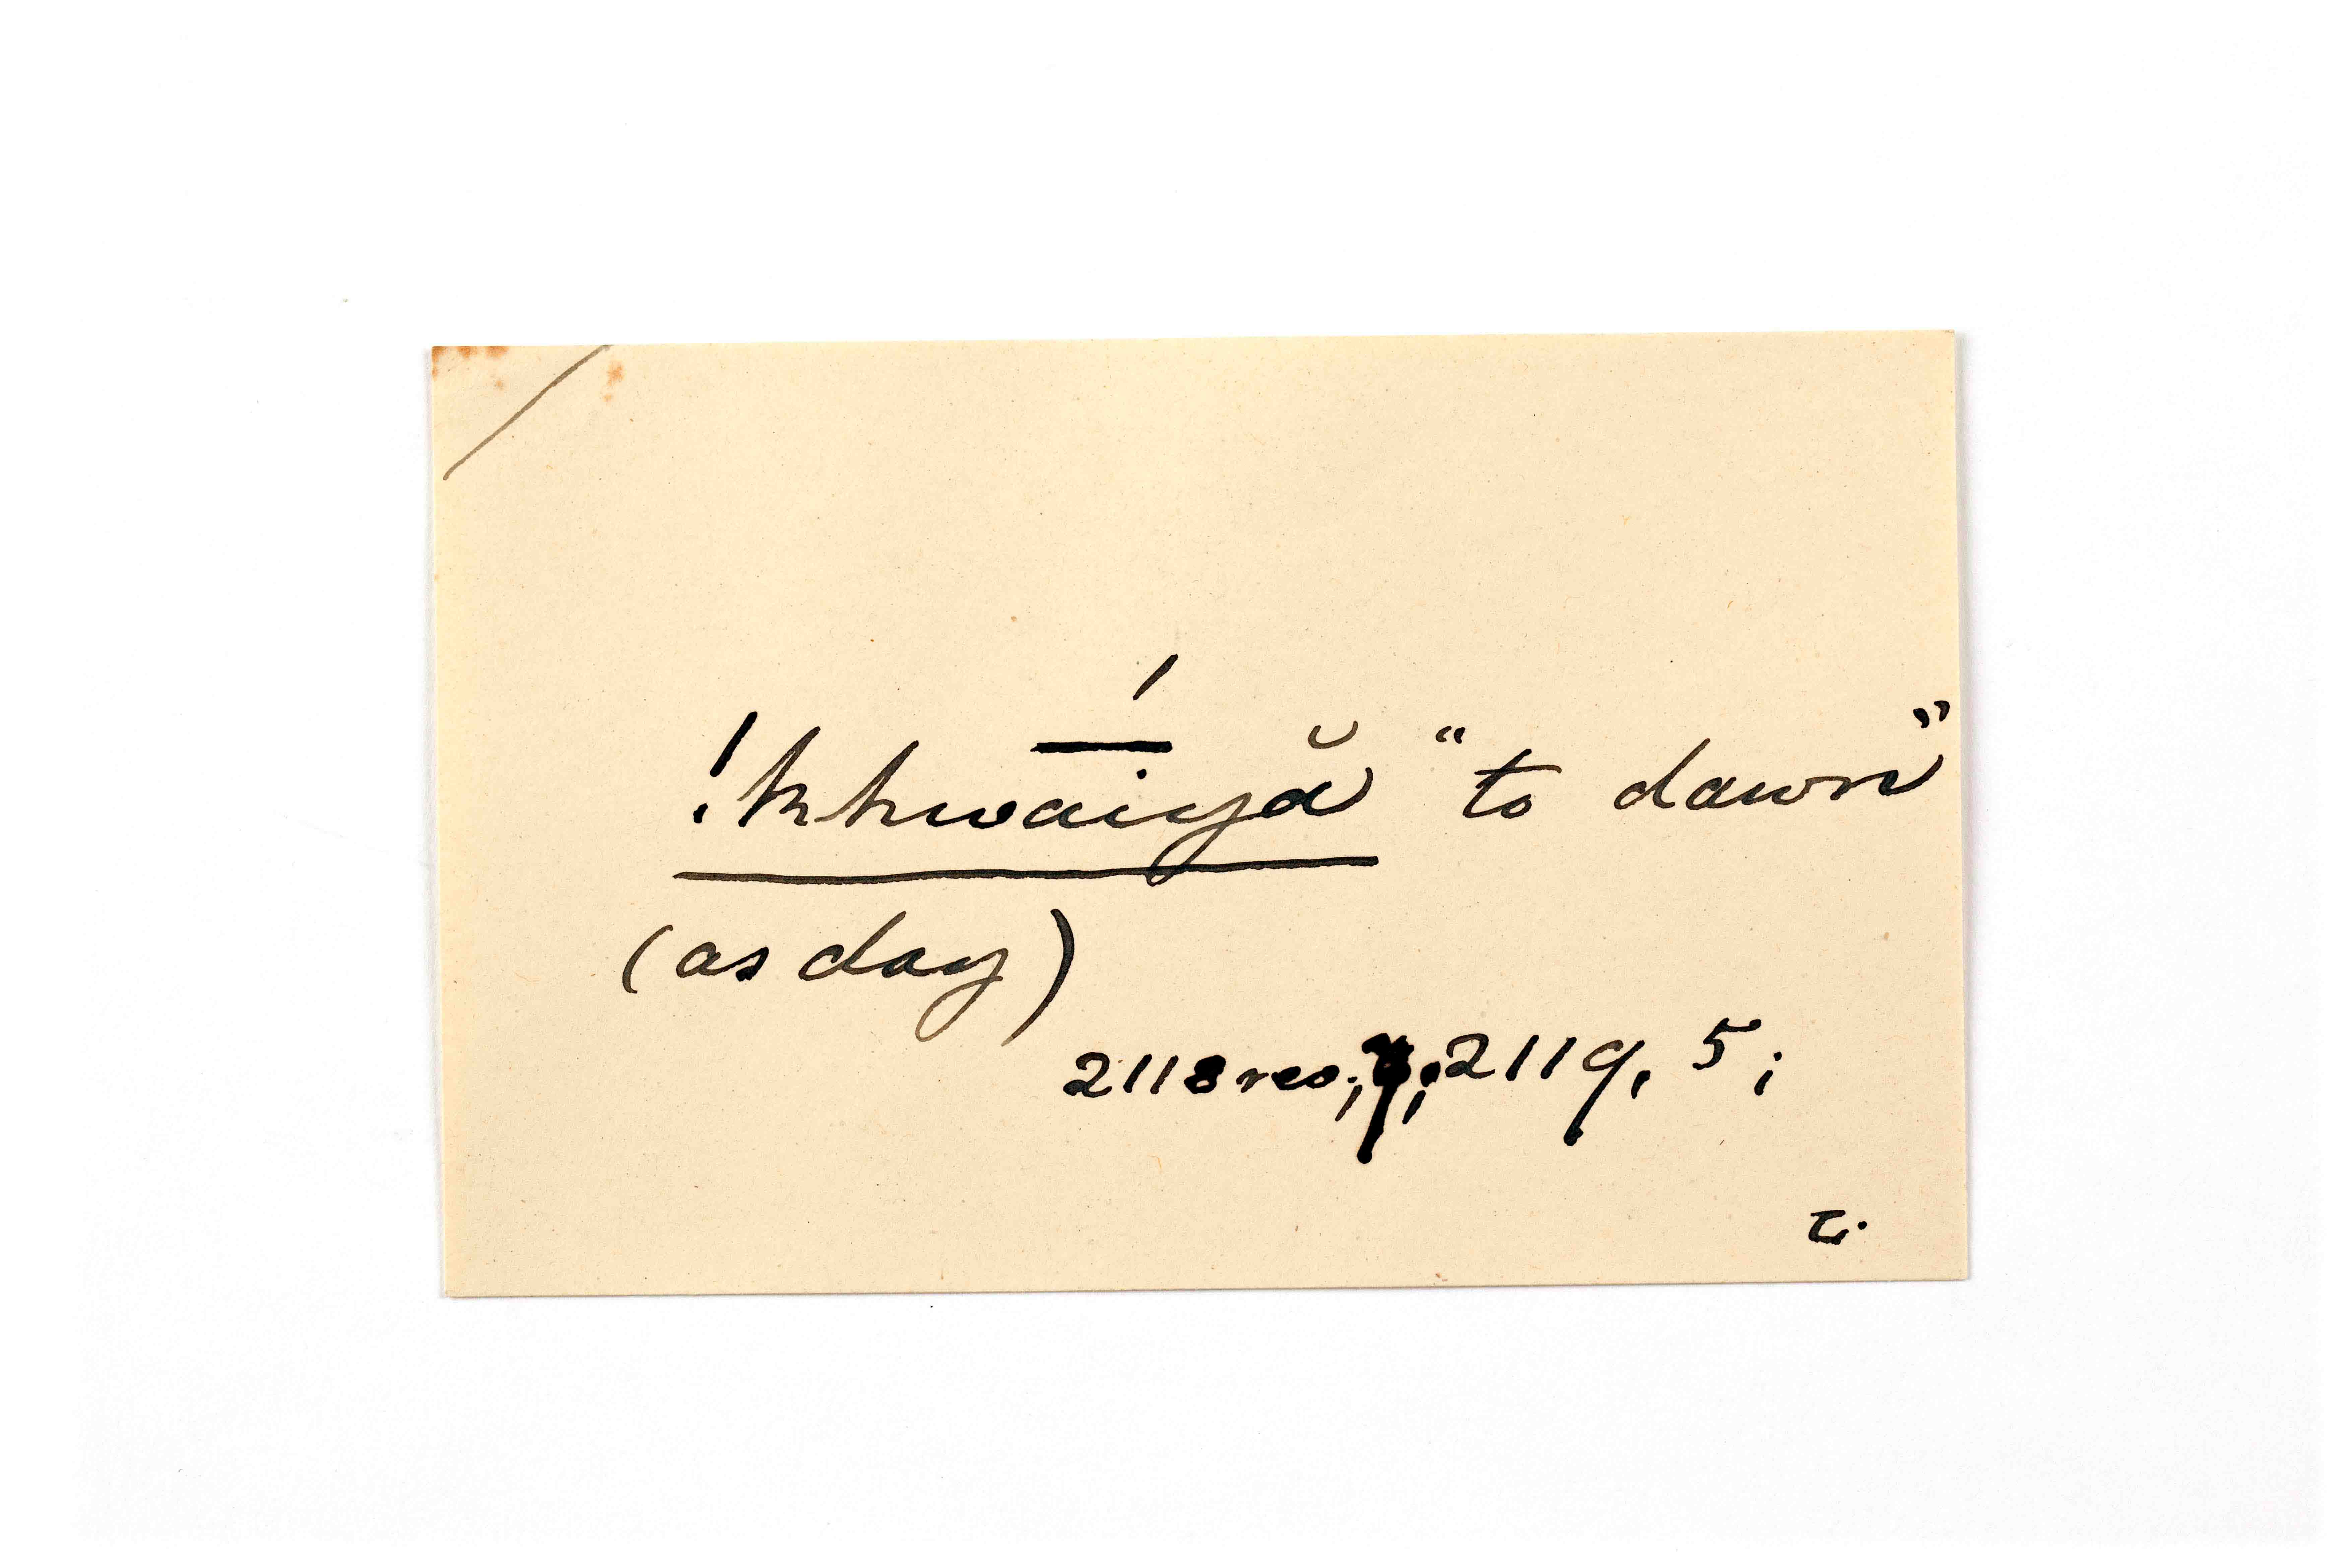 !khwa͞íyă "to dawn"
(as day)
2118 rev.; 9; 2119, 5;
τ.